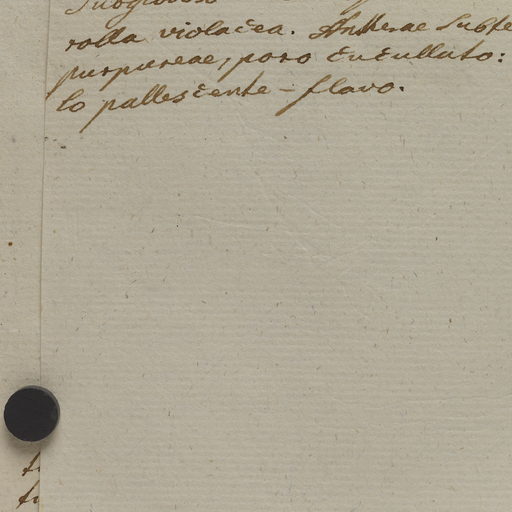 rolla violacea. Antherae Subte
purpureae, poro cucullato:
lo pallescente - flavo.